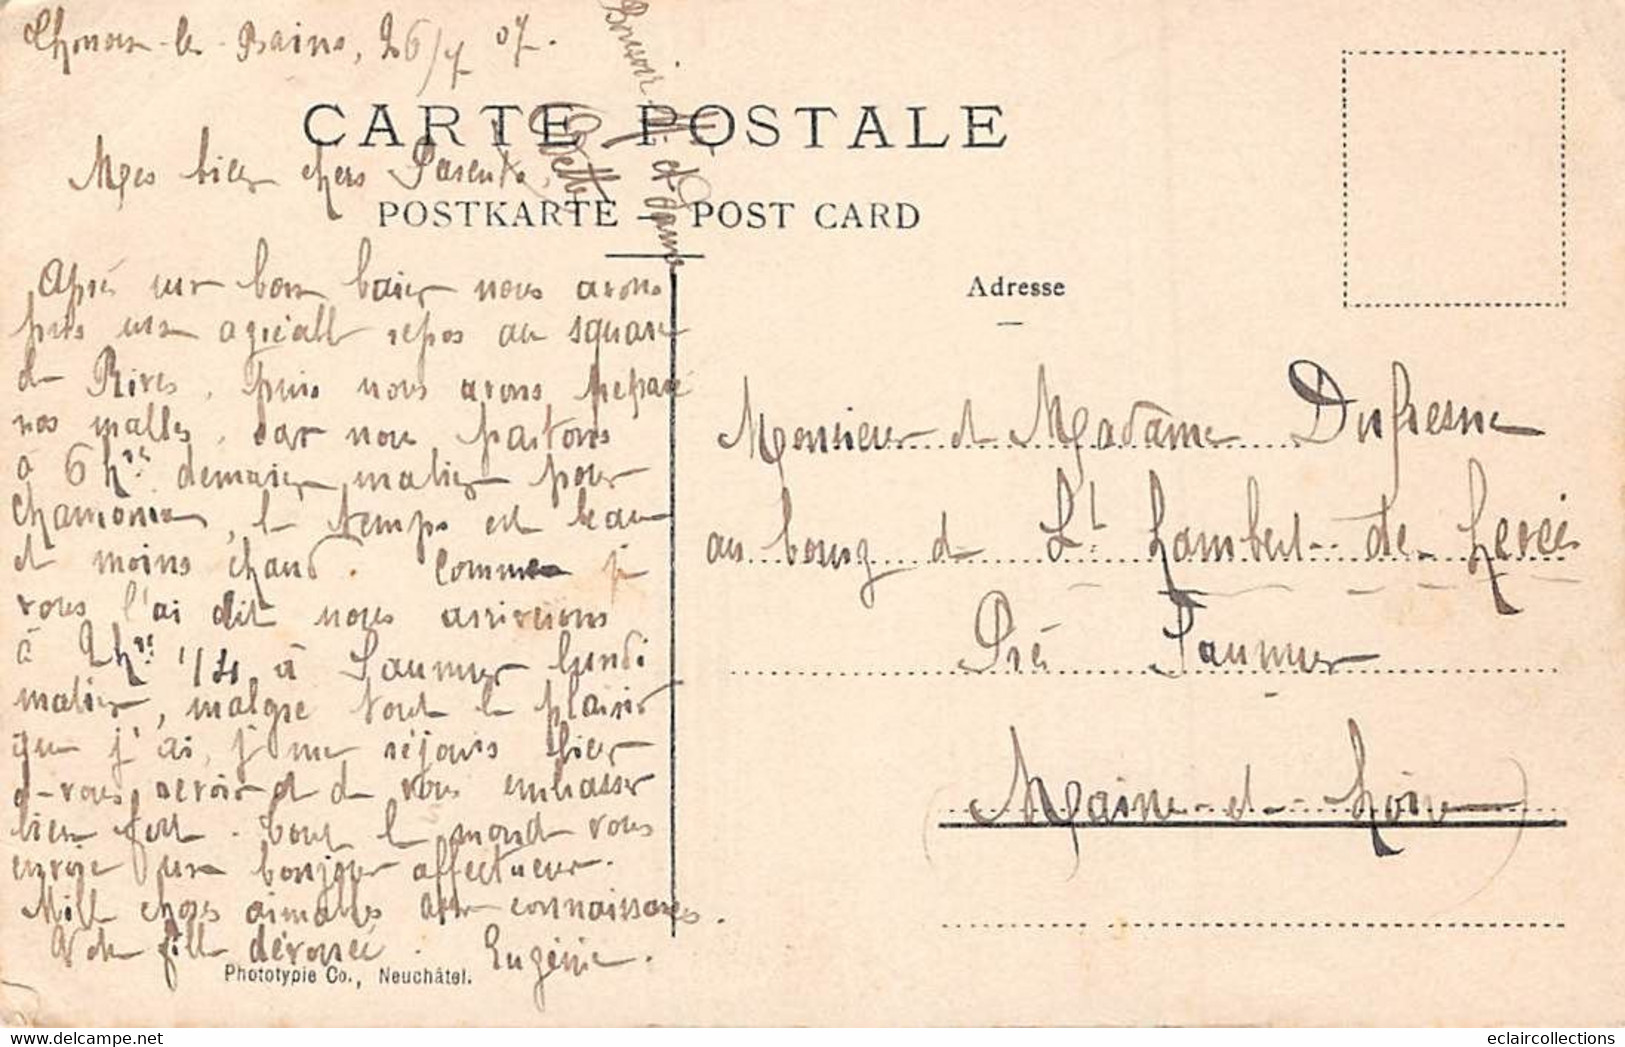 Thonon-les-Bains, 26/7 07.
Bonsoir M. et Dame
Odette
CARTE POSTALE
Mes bien chers Parents,
POSTKARTE — POST CARD
Après un bon baiser nous avons
pris un agréable repos au square
de Rives. Puis nous avons préparé
nos malles, car nous partons
à 6 hres demain matin pour
Chamonix, le temps est beau
et moins chaud. Comme je
vous l'ai dit nous arriverons
à 2 hres 1/4 à Saumur lundi
matin, malgré tout le plaisir
que j'ai, je me réjouis bien
de vous revoir et de vous embrasser
bien fort. Tout le monde vous
envoie un bonjour affectueux.
Mille choses aimables aux connaissances.
Votre fille dévouée. Eugénie.
Phototypie Co., Neuchâtel.
Adresse
Monsieur et Madame Dufresne
au bourg de St Lambert-des-Levées
Près Saumur
(Maine-et-Loire)
eclaircollections